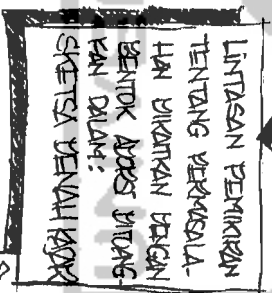 LINTASAN PEMIKIRAN
TENTANG PERMASALA-
HAN DIKAITKAN DENGAN
BENTUK ARS DITUANG-
KAN DALAM :
SKETSA DENAH KASAR